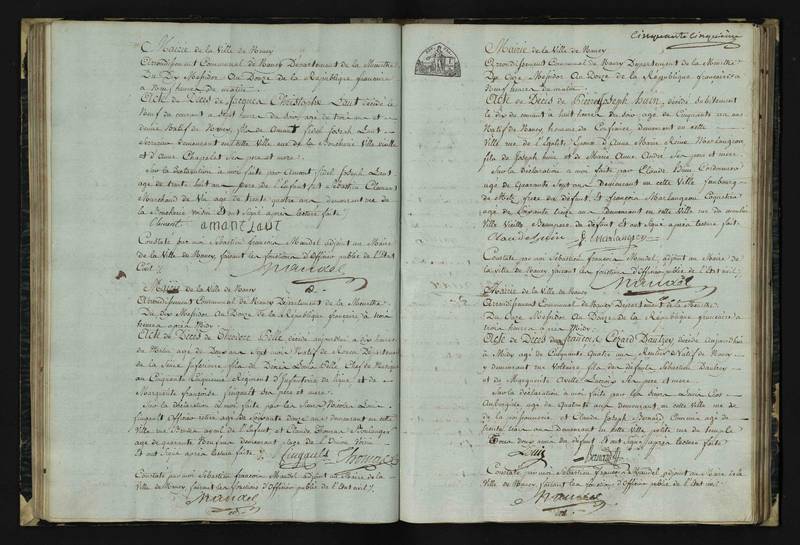 Mairie de la Ville de Nancy
Arrondissement Communal de Nancy Département de la Meurthe
Du Dix Messidor An Douze de la République française
à Neuf heures du matin
Acte de Décès de Jacques Christophe Laut décédé le
Neuf du courant à sept heures du soir age de trois ans et
demi Natif de Nancy, fils de Amant fidel Joseph Laut
demeurant en cette Ville rue de la Boucherie Ville vieille
et d'Anne Chapelet ses père et mère
Sur la déclaration à moi faite par Amant fidel Joseph Laut
age de trente huit ans père de l'Enfant, et Sébastien Clément
Marchand de Vin age de trente quatre ans demeurant rue de
la Boucherie voisin Et ont signé après lecture faite
Clement amant Laut
Constaté par moi Sébastien françois Mandel adjoint au Maire
de la Ville de Nancy, faisant les fonctions d'Officier public de l'Etat
Civil
Mandel
Mairie de la Ville de Nancy
Arrondissement Communal de Nancy Département de la Meurthe
Du Dix Messidor An Douze de la République française à trois
heures après Midy
Acte de Décès de Théodore Pelle décédé aujourdhui à dix heures
du Matin age de Deux ans Sept mois Natif de Rouen Département
de la Seine Inférieure fils de Pelle, Chef de Musique
au Cinquante Cinquieme Régiment d'Infanterie de ligne, et de
Marguerite françoise feugault ses père et mere
Sur la déclaration à moi faite par les Sieurs Nicolas
feugault Officier retiré age de Soixante Douze ans demeurant en cette
Ville ayeul de l'Enfant et Claude Thomas Boulanger
age de quarante Neuf ans demeurant place de Voisin
Et ont Signé après lecture faite
feugault Thomas
Constaté par moi Sébastien françois Mandel adjoint au Maire de la
Ville de Nancy, faisant les fonctions d'Officier public de l'Etat civil
Mandel
Cinquante Cinquième
Mairie de la Ville de Nancy
Arrondissement Communal de Nancy Département de la Meurthe
Du Onze Messidor An Douze de la République française à
Neuf heures du matin
Acte de Décès de Pierre Joseph huin, décédé subitement
le dix du courant à huit heures du soir age de Cinquante un ans
Natif de Nancy, homme de Confiance, demeurant en cette
Ville rue de l'Egalité Epoux d'Anne Marie Reine Marlangeon
fils de Joseph huin et de Marie Anne André Ses père et mere
Sur la déclaration à moi faite par Claude Huin Cordonnier
age de Quarante Sept ans Demeurant en cette Ville faubourg
de Metz frere du défunt Et françois Marlangeon Coquetier
age de Soixante trois ans demeurant en cette Ville rue du moulin
Ville Vieille, Beaupere du défunt Et ont Signé après lecture faite
Claude huin f Marlangeon
Constaté par moi Sébastien françois Mandel, adjoint au Maire de
la Ville de Nancy, faisant les fonctions d'Officier public de l'Etat civil
Mandel
Mairie de la Ville de Nancy
Arrondissement Communal de Nancy Département de la Meurthe
Du Onze Messidor An Douze de la République française à
trois heures après Midy
Acte de Décès de françois Gérard décédé Aujourdhui
à Midy age de Cinquante Quatre ans Rentier Natif de Nancy
y demeurant rue Voltaire fils des défunts Sébastien
et de Marguerite Ses père et mere
Sur la déclaration à moi faite par les Sieurs Louis
age de Quarante ans demeurant en cette Ville rue de
de la poissonnerie et Claude Commis age de
ans Demeurant En cette Ville petite rue du temple
Tous deux amis du défunt Et ont Signé après lecture faite
Louis
Constaté par moi Sébastien françois Mandel, adjoint au Maire de la
Ville de Nancy, faisant les fonctions d'Officier public de l'Etat civil
Mandel